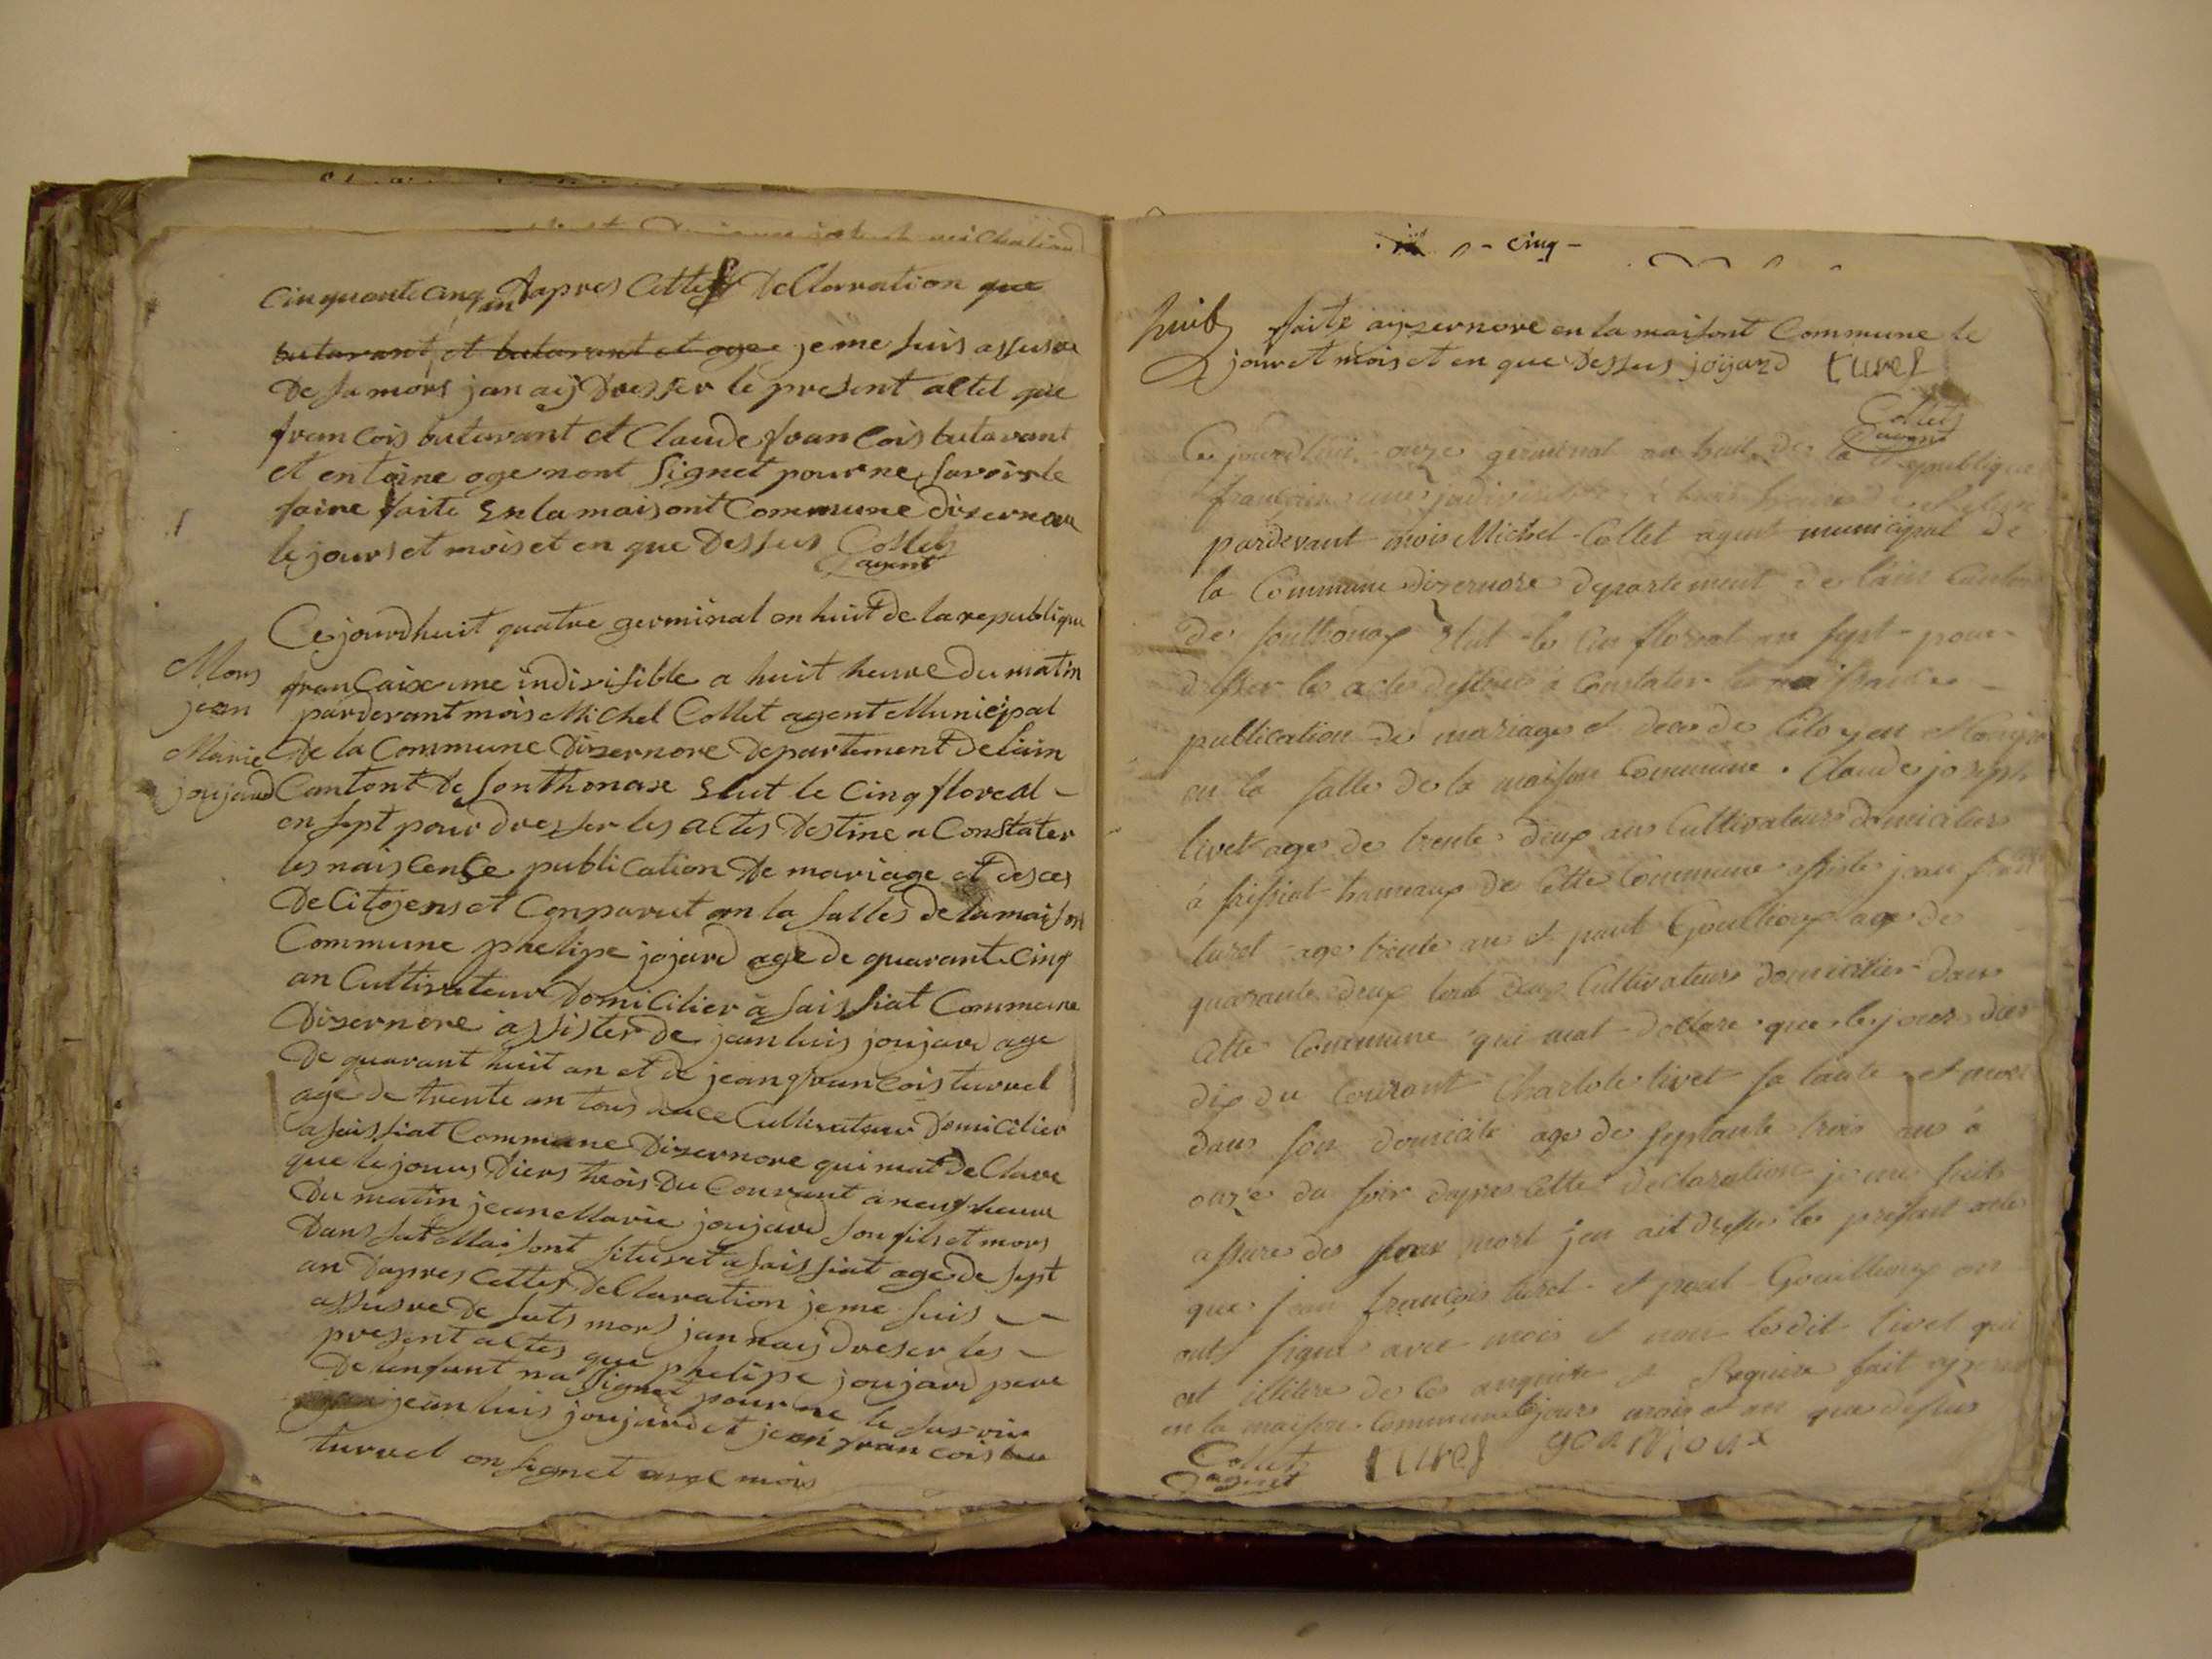 cinquante cinq an dapres cettes declarration que
butavant et butavant et oge je me suis assusre
de sa mors jan aÿ dresser le present actet que
francois butavant et Claude francois butavant
et entoine oge nont signet pour ne savoir le
faire faite en la maisont Commune dizernore
le jours et mois et en que dessus Collet
agent
Ce jourdhuit quatre germinal en huit de la republique
Mors
francaixe une indivisible a huit heure du matin
jean
pardevant mois Michel Collet agent Municipal
Marie
de la Commune dizernore departement de lain
joujard
Cantont de Sonthonaxe Elut le cinq floreal -
en sept pour dresser les actes destine a Constater
les naiscence publication de mariage et desces
de Citoyens et Conparut en la salles de la maison
Commune phelipe jojard age de quarant cinq
an Cultivateur domicilier a saissiat Commune
dizernore assister de jean luis joujard age
de quarant huit an et de jean francois turrel
age de trente an tous Cultivateur domicilier
a saissiat Commune dizernore qui mat declare
que le jours diers trois du Courant a neuf heure
du matin jean Marie joujard son fils et mors
dans sat Maisont situret a saissiat age de sept
an dapres cettes decllaration je me suis
assusre de sats mors jan naiÿ dreser les
present actes que phelipe joujard pere
de lenfant na signet pour ne le savoir
jean luis joujard et jean francois
turrel on signet avec mois
- cinq -
huit faite aizernore en la maisont Commune le
jour et mois et en que dessus joÿard turel
Collet
agent
Ce jourdhui onze germinal an huit de la republique
française une indivisible
pardevant mois Michel Collet agent municipal de
la Commune dizernore departement de lain Canton
de sonthonax elut le cin floreal an sept pour
dresser les actes destines a Constater les naissance
publication de mariages et deces de Citoyen
en la salle de la maison Commune . Claude joseph
livet age de trente deux ans Cultivateurs domicilies
à hameaux de Cette Commune assiste jean
turel age trente ans et paul Gouillioux age de
quarante deux tout deux Cultivateurs domicilier dans
Cette Commune qui mat declare que le jours
dix du Courant Charlote livet sa tante et mort
dans son domicile age de septante trois ans à
onze du soir dapres cette declaration je me suit
assure des mort jen ait dresse les present acte
que jean françois turel et paul Gouillioux on
ont signe avec mois et non les dit livet qui
et illitere de ce enquire et Requiere fait
en la maison Commune les jours mois et an que dessus
Collet turel gouilloux
agent